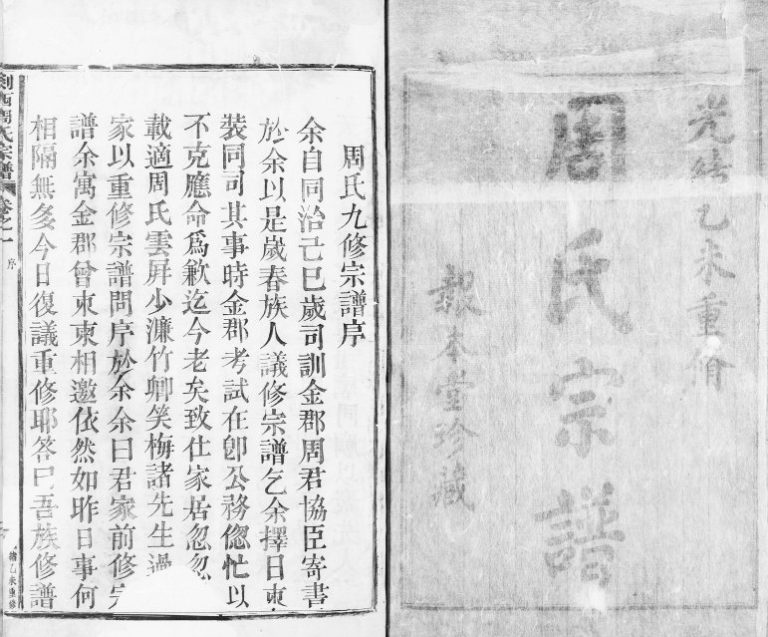 光緒乙未重脩
周氏宗譜
報本堂珍藏
周氏九修宗譜序
余自同治己巳歲司訓金郡周君協臣寄書
於余以是歲春族人議修宗譜乞余擇日東
裝同司其事時金郡考試在卽公務偬忙以
不克應命爲歉迄今老矣致仕家居忽忽
載適周氏雲屏少濂竹卿笑梅諸先生過
家以重修宗譜問序於余余曰君家前修宗
譜余寓金郡曾柬柬相邀依然如昨日事何
相隔無多今日復議重修耶答曰吾族修譜
剡西周氏宗譜 卷之一 序
緒乙未重修